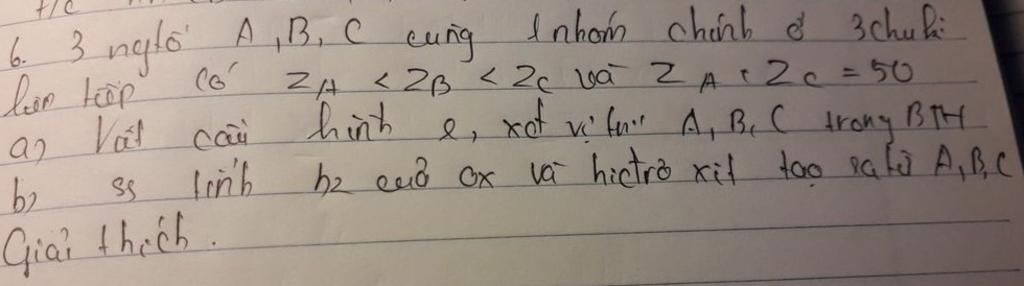 T/C
6. 3 ngtố A, B, C cùng 1 nhóm chính ở 3 chu kì
liên tiếp có ZA < ZB < ZC và ZA + ZC = 50
a) Viết cấu hình e, xđ vị trí A, B, C trong BTH
b) SS tính bz của ox và hiđrôxit tạo ra từ A, B, C
Giải thích.